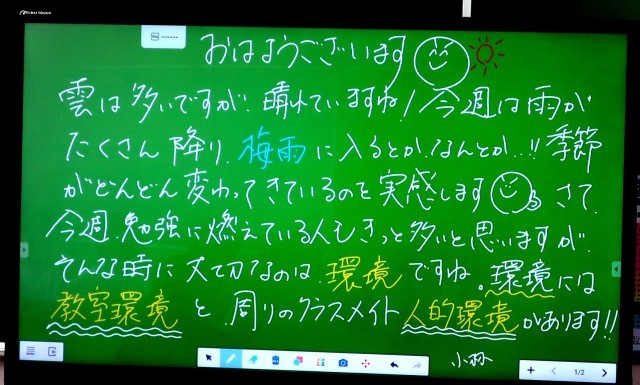 おはようございます
雲は多いですが、晴れていますね!今週は雨が
たくさん降り、梅雨に入るとか、なんとか…!!季節
がどんどん変わってきているのを実感します さて、
今週、勉強に燃えている人もきっと多いと思いますが、
そんな時に大切なのは、環境ですね。環境には
教室環境と、周りのクラスメイト人的環境があります!!
小林
1/2